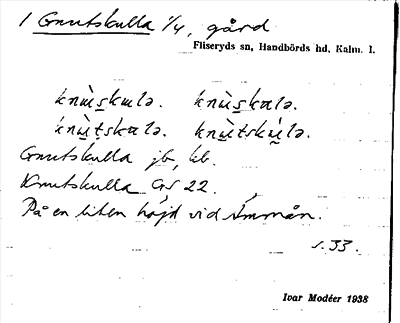 1 Gnutskulla 1/4, gård
Fliseryds sn, Handbörds hd, Kalm. l.
knùs̱kulə. knùs̱kələ.
knùṯskələ. knùtskúlə.
Gnutskulla jb, kb.
Knutskulla GS 22.
På en liten höjd vid Emmån.
s. 33.
Ivar Modéer 1938